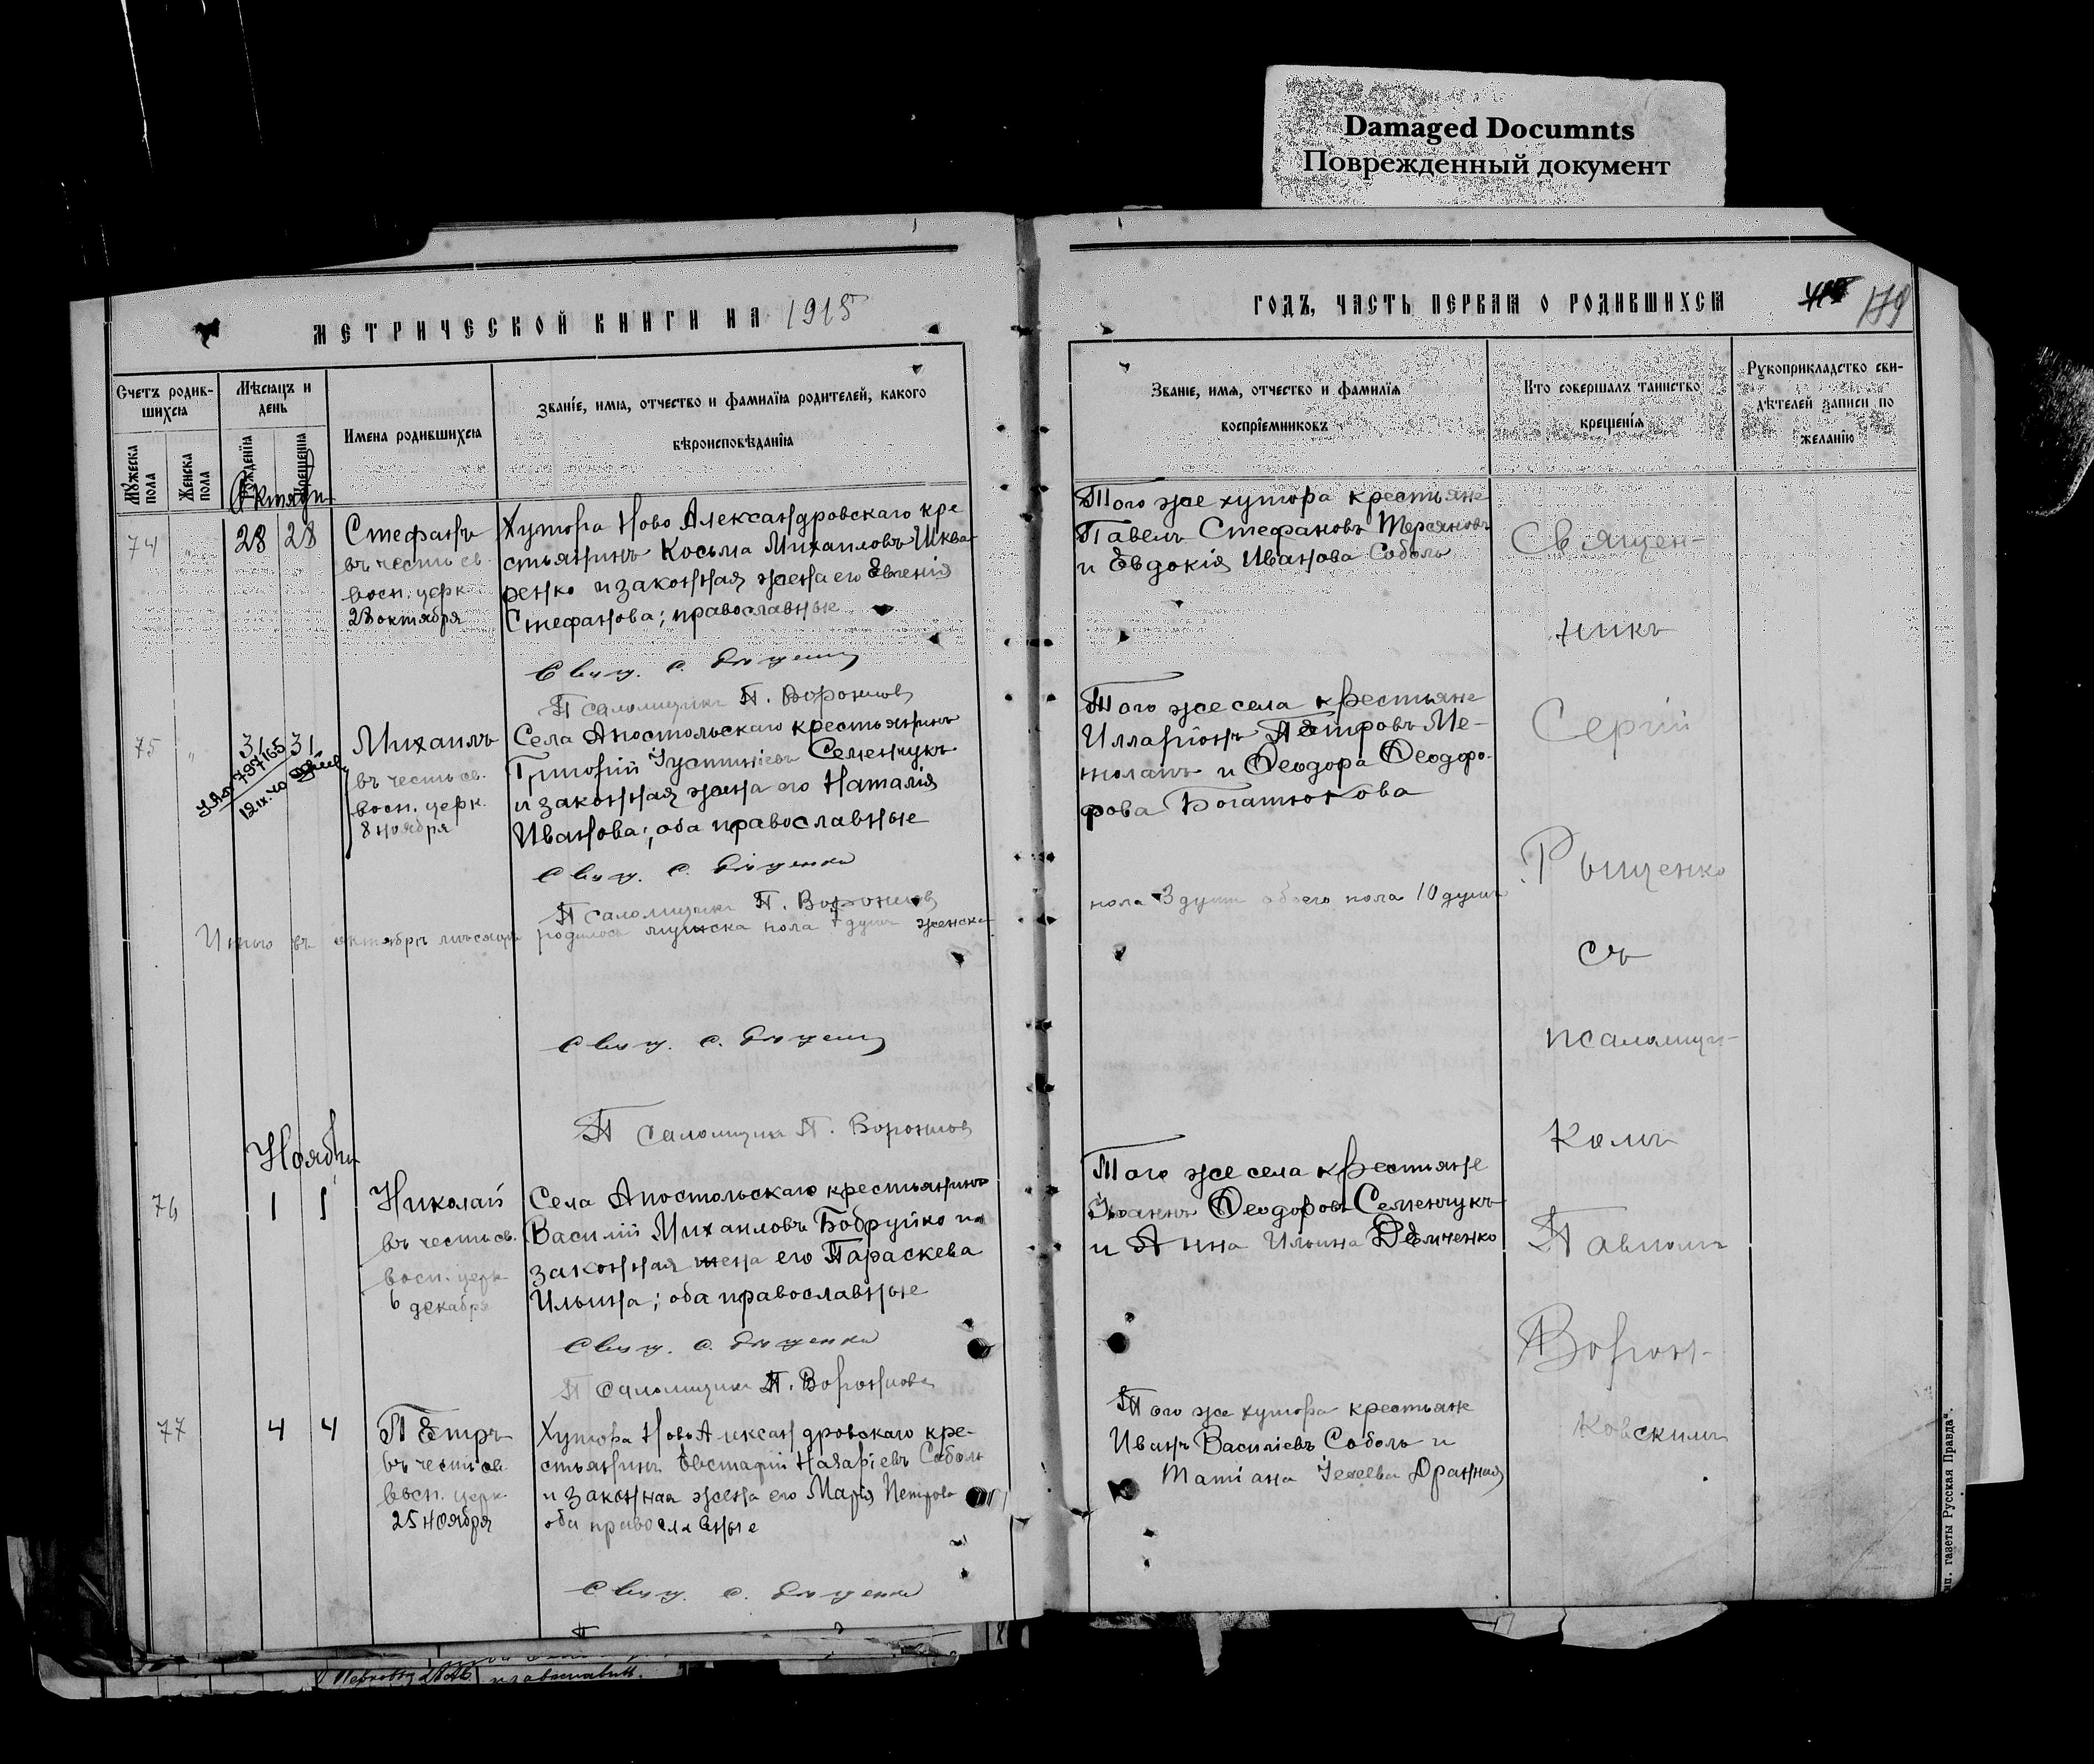 Damaged Documnts
Поврежденный документ
МЕТРИЧЕСКОЙ КНИГИ НА 1915
Счетъ родив-
шихся
Мѣсяцъ и
день
Мужеска
пола
Женска
пола
рожденія
крещенія
Имена родившихся
Званіе, имя, отчество и фамилія родителей, какого
вѣроисповѣданія
Октябрь
74
28 28
Стефанъ
въ честь св.
восп. церк.
28 октября
Хутора Ново Александровскаго кре
стьянинъ Косьма Михаиловъ Шква-
ренко и законная жена его Евгенія
Стефанова; православные
Свящ. С.
Псаломщикъ П. Воронков
75
31 31
797165
Михаилъ
въ честь св.
восп. церк.
8 ноября
Села Апостольскаго крестьянинъ
Григорій Іустиніевъ Семенчукъ
и законная жена его Наталія
Иванова; оба православные
Свящ. С.
Псаломщикъ П. Воронков
Итого въ октябрѣ мѣсяцѣ родилось мужска пола 7 душъ женска
Свящ. С.
Псаломщикъ П. Воронков
Ноябрь
76
1 1
Николай
въ честь св.
восп. церк
6 декабря
Села Апостольскаго крестьянинъ
Василій Михаиловъ Бобруйко и
законная жена его Параскева
Ильина; оба православные
Свящ. С.
Псаломщикъ П. Воронков
77
4 4
Петръ
въ честь св.
восп. церк
25 ноября
Хутора Ново Александровскаго кре-
стьянинъ Евстафій Назаріевъ Соболь
и законная жена его Марія Петрова
оба православные
Свящ. С.
ГОДЪ, ЧАСТЬ ПЕРВАЯ О РОДИВШИХСЯ
179
Званіе, имя, отчество и фамилія
воспріемниковъ
Кто совершалъ таинство
крещенія
Рукоприкладство сви-
дѣтелей записи по
желанію
Того же хутора крестьяне
Павелъ Стефановъ
и Евдокія Иванова Соболь
Того же села крестьяне
Илларіонъ Петровъ Ме-
и Ѳеодора Ѳеодоро-
рова Богатюкова
пола 3 души обоего пола 10 душъ
Того же села крестьяне
Іоаннъ Ѳеодоровъ Семенчукъ
и Анна Ильина
Того же хутора крестьяне
Иванъ Василіевъ Соболь и
Татіана
Священ-
никъ
Сергій
Рыщенко
съ
псаломщи-
комъ
Павломъ
Ворон-
ковскимъ
газеты Русская Правда".